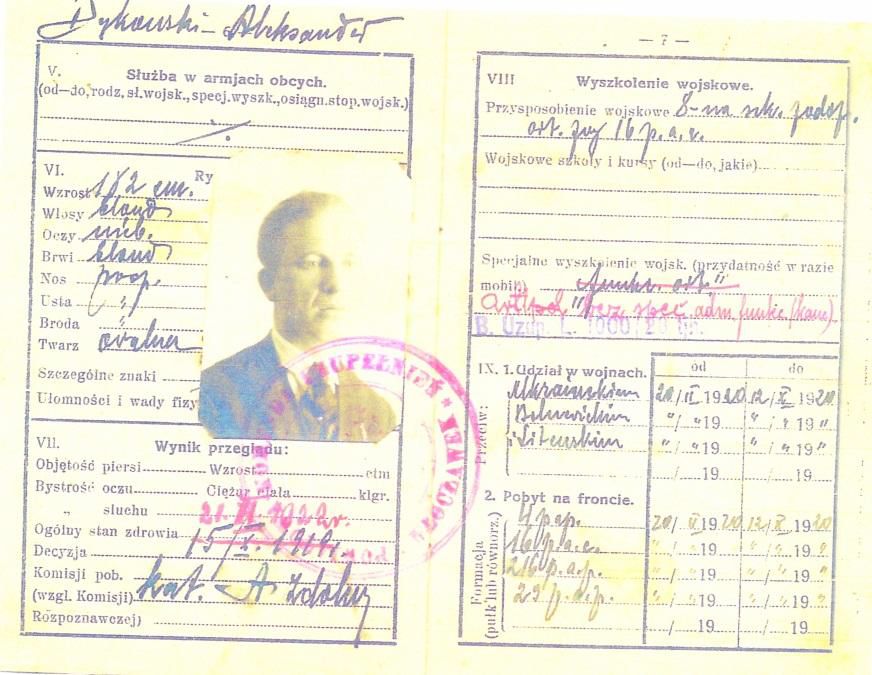 Dykowski - Aleksander
V. Służba w armjach obcych.
(od—do, rodz. sł. wojsk., specj. wyszk., osiągn. stop. wojsk.)
VI. Ry
Wzrost 182 cm.
Włosy blond
Oczy nieb.
Brwi blond
Nos prop.
Usta "
Broda "
Twarz owalna
Szczególne znaki
Ułomności i wady fizy
VII. Wynik przeglądu:
Objętość piersi Wzrost ctm
Bystrość oczu Ciężar ciała klgr.
" słuchu
Ogólny stan zdrowia
Decyzja
Komisji pob. kat. A zdolny
(wzgl. Komisji)
Rozpoznawczej)
UZUPEŁNIEŃ * WŁOCŁAWEK
— 7 —
VIII Wyszkolenie wojskowe.
Przysposobienie wojskowe 8-na szk. podof.
art. przy 16 p.a.c.
Wojskowe szkoły i kursy (od—do, jakie)
Specjalne wyszkolenie wojsk. (przydatność w razie
mobil.) "funkc. art."
bez spec adm. funkc (kanc).
IX. 1. Udział w wojnach. od do
Przeciw:
Ukraińskiem 20/II 1920 12/X 1920
Bolszewickim "/" 19" "/" 19"
i Litewskim "/" 19" "/" 19"
/ 19 / 19
2. Pobyt na froncie.
Formacja
(pułk lub równorz.)
4 p.a.p. 20/II 1920 12/X 1920
16 p.a.c. "/" 19" "/" 19"
216 p.a.p. "/" 19" "/" 19"
23 p.a.p. "/" 19" "/" 19"
/ 19 / 19
/ 19 / 19